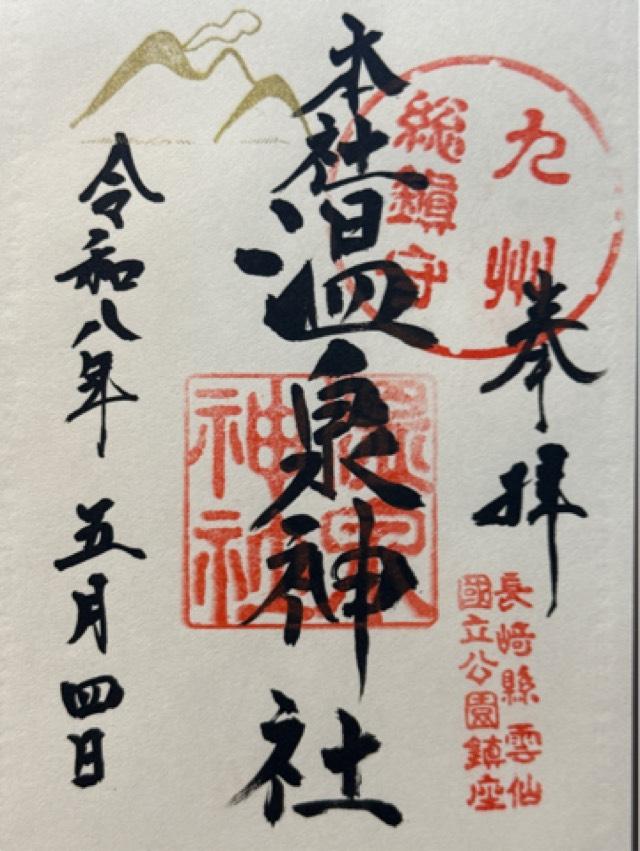 奉拝
九州
総鎮守
長崎縣雲仙
國立公園鎮座
本社温泉神社
温泉
神社
令和八年五月四日